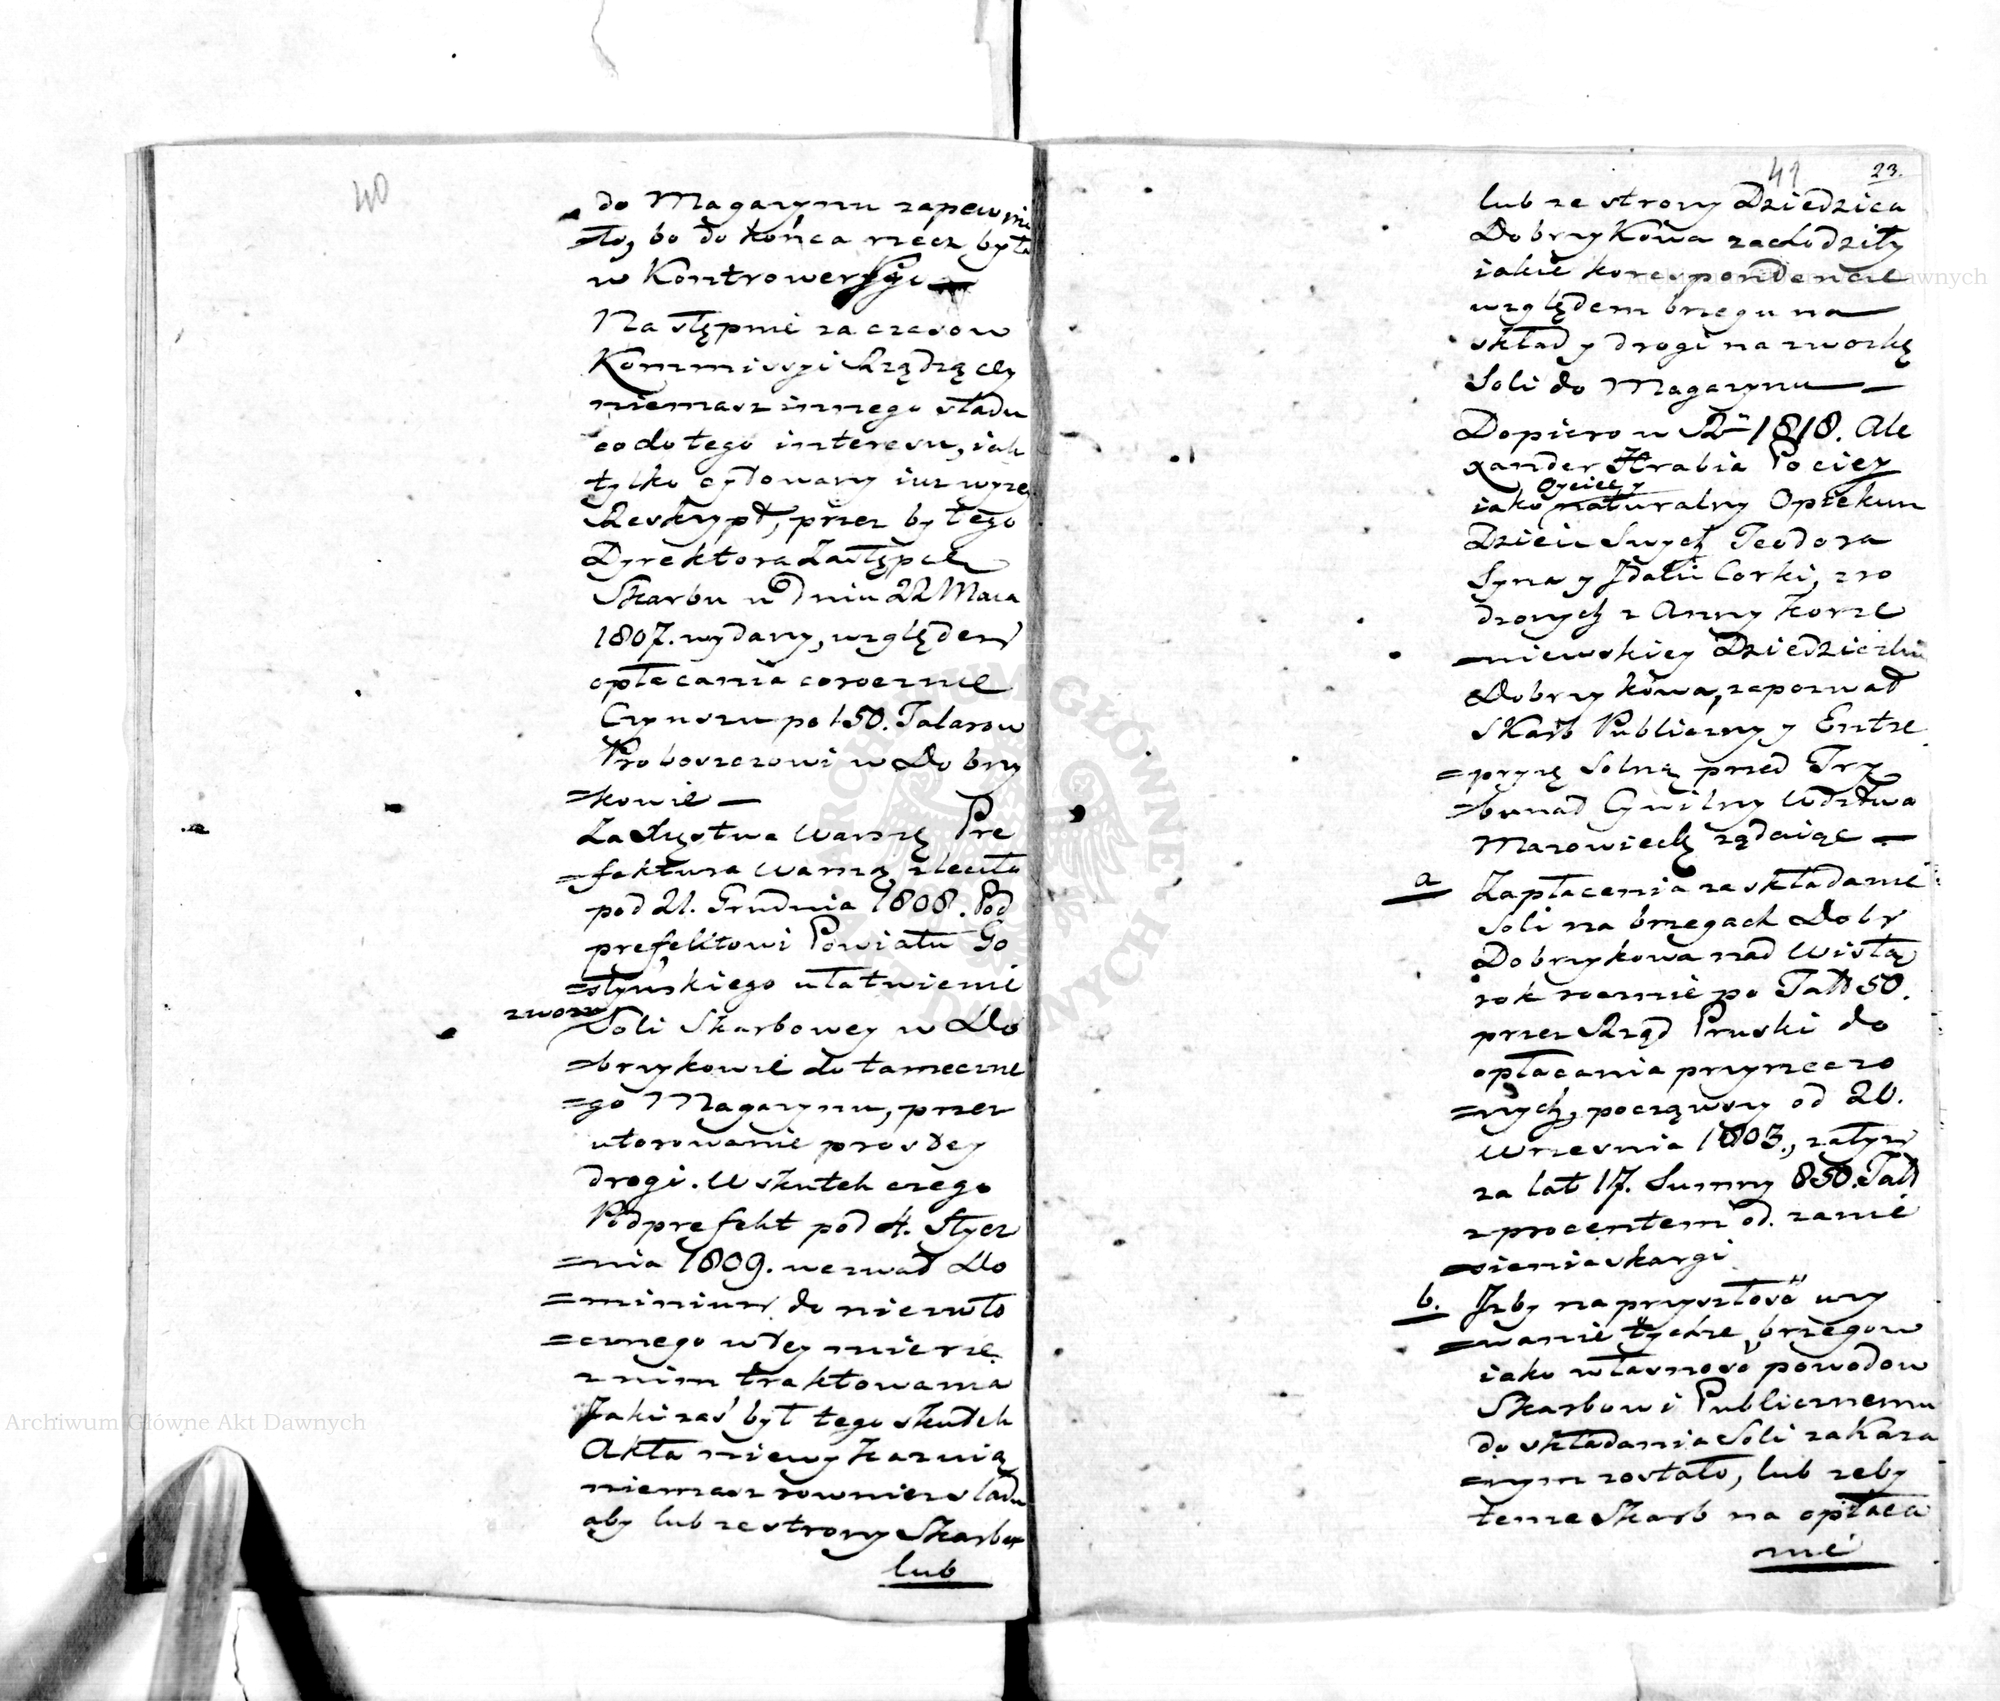 40
do Magazynu zapewni
=ło, bo do końca rzecz była
w Kontrowersyi
Następnie za czasow
Kommissyi Rządzącey
niemasz innego sladu
co do tego interesu, iak
tylko cytowany iuż wyzey
Reskrypt, przez byłego
Dyrektora Zastępcę
Skarbu w dniu 22 Maia
1807. wydany, względem
opłacania corocznie
Czynszu po 150. Talarow
Proboszczowi w Dobrzy
=kowie —
Za Xięstwa Warszę Pre
=fektura Warszę zleciła
pod 21. Grudnia 1808. Pod
prefektowi Powiatu Go
=styńskiego ułatwienie
zwozu
Soli Skarbowey w Do
=brzykowie do tameczne
=go Magazynu, przez
utorowanie prostey
drogi. W skutek czego
Podprefekt pod 4. Stycz
=nia 1809. wezwał Do
=minium do niezwło
=cznego w tey mierze
z nim traktowania
Jaki zaś był tego skutek
Akta niewykazuią
niemasz rownież sladu
aby lub ze strony Skarbu
lub
41
23.
lub ze strony Dziedzica
Dobrzykowa zachodziły
iakie korespondencie
względem brzegu na
skład y drogi na zwozkę
Soli do Magazynu —
Dopiero w R. 1818. Ale
xander Hrabia Pociey
Oyciec y
iako naturalny Opiekun
Dzieci Swych Teodora
Syna y Idalii Corki, zro
dzonych z Anny Korze
=niewskiey Dziedziczki
Dobrzykowa, zapozwał
Skarb Publiczny y Entre
=pryzę Solną przed Try
=bunał Cywilny Wdztwa
Mazowieck żądaiąc —
a Zapłacenia za składanie
Soli na brzegach Dobr
Dobrzykowa nad Wisłą
rok rocznie po Tal 50.
przez Rząd Pruski do
opłacania przyrzeczo
=nych, począwszy od 20.
Wrzesnia 1803., zatym
za lat 17. Summy 850. Tal
z procentem od zanie
=sienia skargi
b. Jżby na przyszłość uzy
=wanie tychże brzegow
iako własność powodow
Skarbowi Publicznemu
do składania Soli zakaza
=nym zostało, lub zeby
tenze Skarb na opłaca
nie
Archiwum Główne Akt Dawnych
Archiwum Główne Akt Dawnych
ARCHIWUM GŁÓWNE AKT DAWNYCH